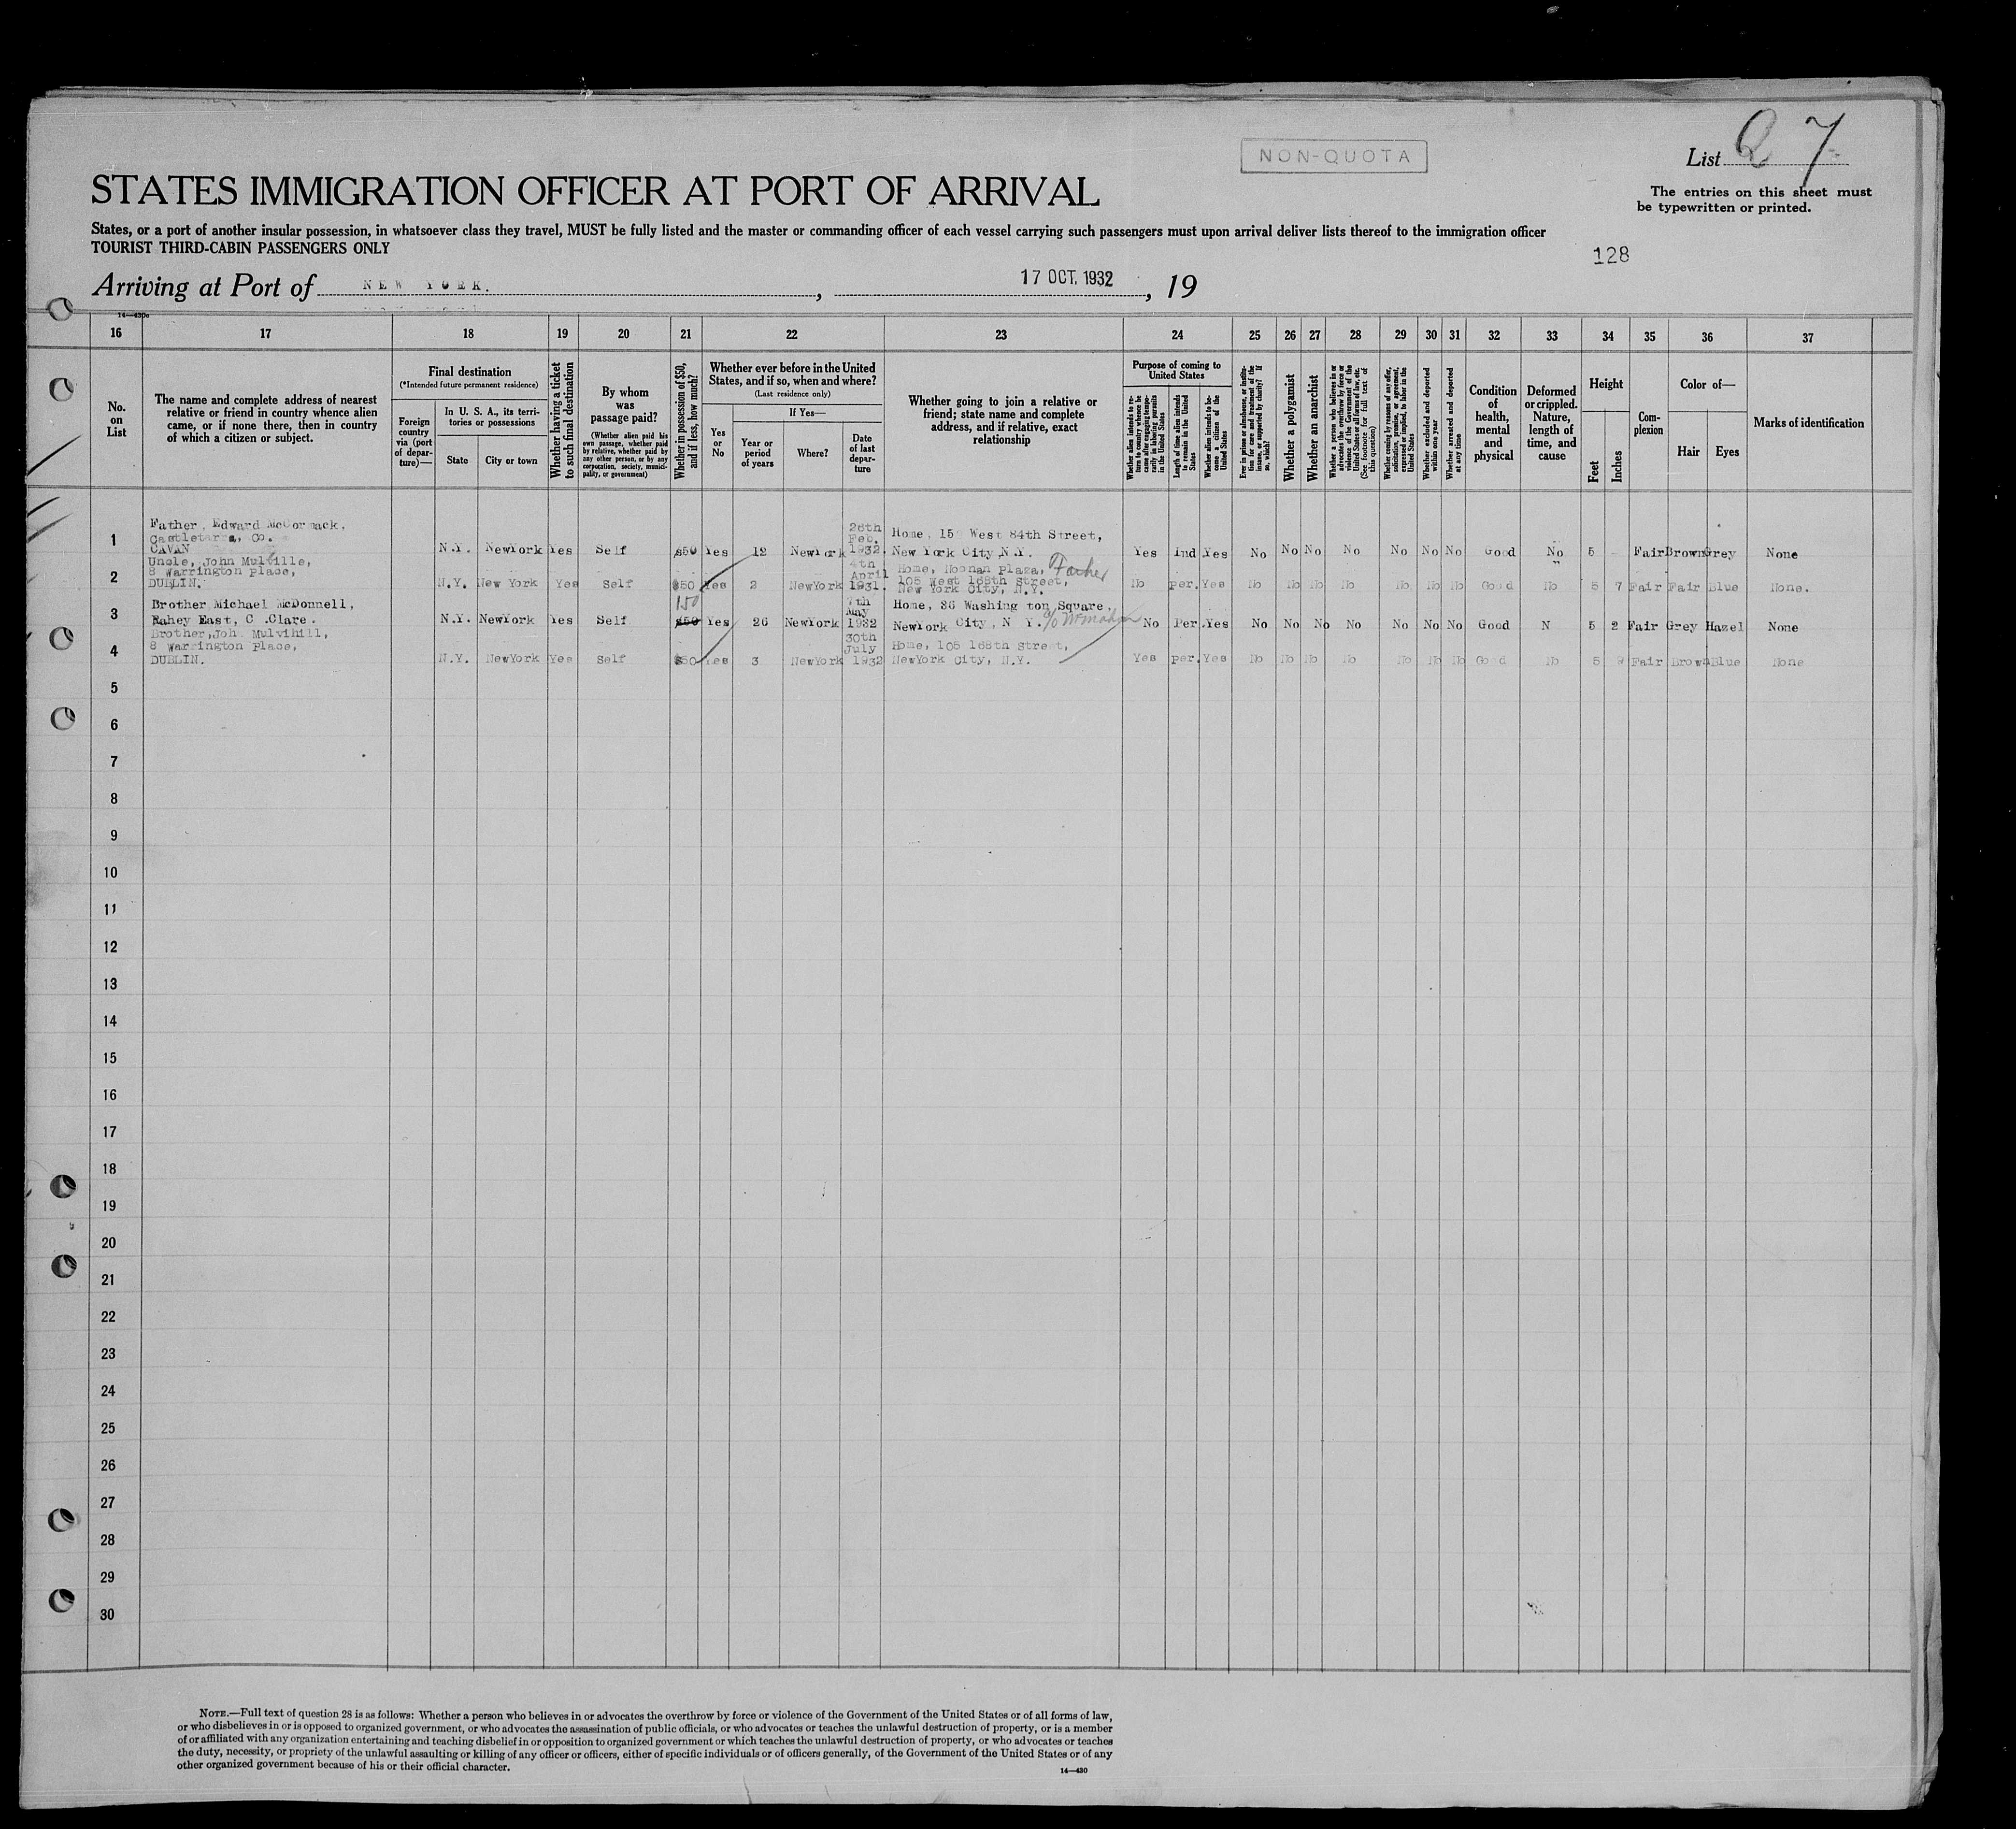 NON-QUOTA
List 27
STATES IMMIGRATION OFFICER AT PORT OF ARRIVAL
The entries on this sheet must
be typewritten or printed.
States, or a port of another insular possession, in whatsoever class they travel, MUST be fully listed and the master or commanding officer of each vessel carrying such passengers must upon arrival deliver lists thereof to the immigration officer
TOURIST THIRD-CABIN PASSENGERS ONLY
128
Arriving at Port of NEW YORK. , 17 OCT. 1932 , 19
14—430a
16 17 18 19 20 21 22 23 24 25 26 27 28 29 30 31 32 33 34 35 36 37
No.
on
List
The name and complete address of nearest
relative or friend in country whence alien
came, or if none there, then in country
of which a citizen or subject.
Final destination
(*Intended future permanent residence)
Foreign
country
via (port
of depar-
ture)—
In U. S. A., its terri-
tories or possessions
State
City or town
Whether having a ticket
to such final destination
By whom
was
passage paid?
(Whether alien paid his
own passage, whether paid
by relative, whether paid by
any other person, or by any
corporation, society, munici-
pality, or government)
Whether in possession of $50,
and if less, how much?
Whether ever before in the United
States, and if so, when and where?
(Last residence only)
Yes
or
No
If Yes—
Year or
period
of years
Where?
Date
of last
depar-
ture
Whether going to join a relative or
friend; state name and complete
address, and if relative, exact
relationship
Purpose of coming to
United States
Whether alien intends to re-
turn to country whence he
came after engaging tempo-
rarily in laboring pursuits
in the United States
Length of time alien intends
to remain in the United
States
Whether alien intends to be-
come a citizen of the
United States
Ever in prison or almshouse, or institu-
tion for care and treatment of the
insane, or supported by charity? If
so, which?
Whether a polygamist
Whether an anarchist
Whether a person who believes in or
advocates the overthrow by force or
violence of the Government of the
United States or all forms of law, etc.
(See footnote for full text of
this question)
Whether coming by reasons of any offer,
solicitation, promise, or agreement,
expressed or implied, to labor in the
United States
Whether excluded and deported
within one year
Whether arrested and deported
at any time
Condition
of
health,
mental
and
physical
Deformed
or crippled.
Nature,
length of
time, and
cause
Height
Feet
Inches
Com-
plexion
Color of—
Hair
Eyes
Marks of identification
1
Father, Edward McCormack,
Castletarra, Co.
CAVAN
N.Y. NewYork Yes Self $50 Yes 12 NewYork
26th
Feb.
1932.
Home, 15 West 84th Street,
New York City, N.Y.
Yes Ind Yes No No No No No No No Good No 5 Fair Brown Grey None
2
Uncle, John Mulville,
8 Warrington place,
DUBLIN.
N.Y. New York Yes Self $50 Yes 2 NewYork
4th
April
1931.
Home, Noonan Plaza, Father
105 West 168th Street,
New York City, N.Y.
No per. Yes No No No No No No No Good No 5 7 Fair Fair Blue None.
3
Brother Michael McDonnell,
Rahey East, C .Clare.
N.Y. NewYork Yes Self 150 $50 Yes 26 NewYork
7th
May
1932
Home, 36 Washing ton Square,
NewYork City, N Y. c/o McMahon
No Per. Yes No No No No No No No Good N 5 2 Fair Grey Hazel None
4
Brother, Joh Mulvihill,
8 Warrington place,
DUBLIN.
N.Y. NewYork Yes Self $50 Yes 3 NewYork
30th
July
1932
Home, 105 168th street,
NewYork City, N.Y.
Yes per. Yes No No No No No No No Good No 5 9 Fair Brown Blue None
5
6
7
8
9
10
11
12
13
14
15
16
17
18
19
20
21
22
23
24
25
26
27
28
29
30
NOTE.—Full text of question 28 is as follows: Whether a person who believes in or advocates the overthrow by force or violence of the Government of the United States or of all forms of law,
or who disbelieves in or is opposed to organized government, or who advocates the assassination of public officials, or who advocates or teaches the unlawful destruction of property, or is a member
of or affiliated with any organization entertaining and teaching disbelief in or opposition to organized government or which teaches the unlawful destruction of property, or who advocates or teaches
the duty, necessity, or propriety of the unlawful assaulting or killing of any officer or officers, either of specific individuals or of officers generally, of the Government of the United States or of any
other organized government because of his or their official character.
14—430